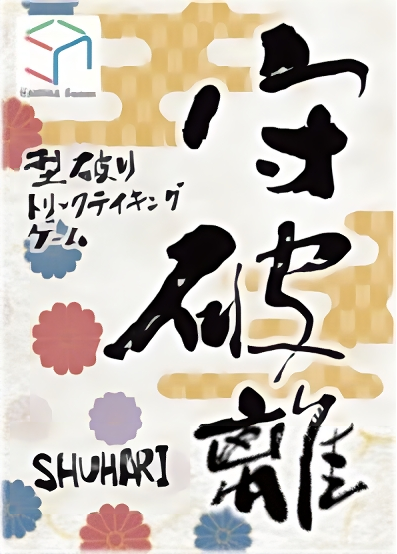 守破離
型破り
トリックテイキング
ゲーム。
SHUHARI